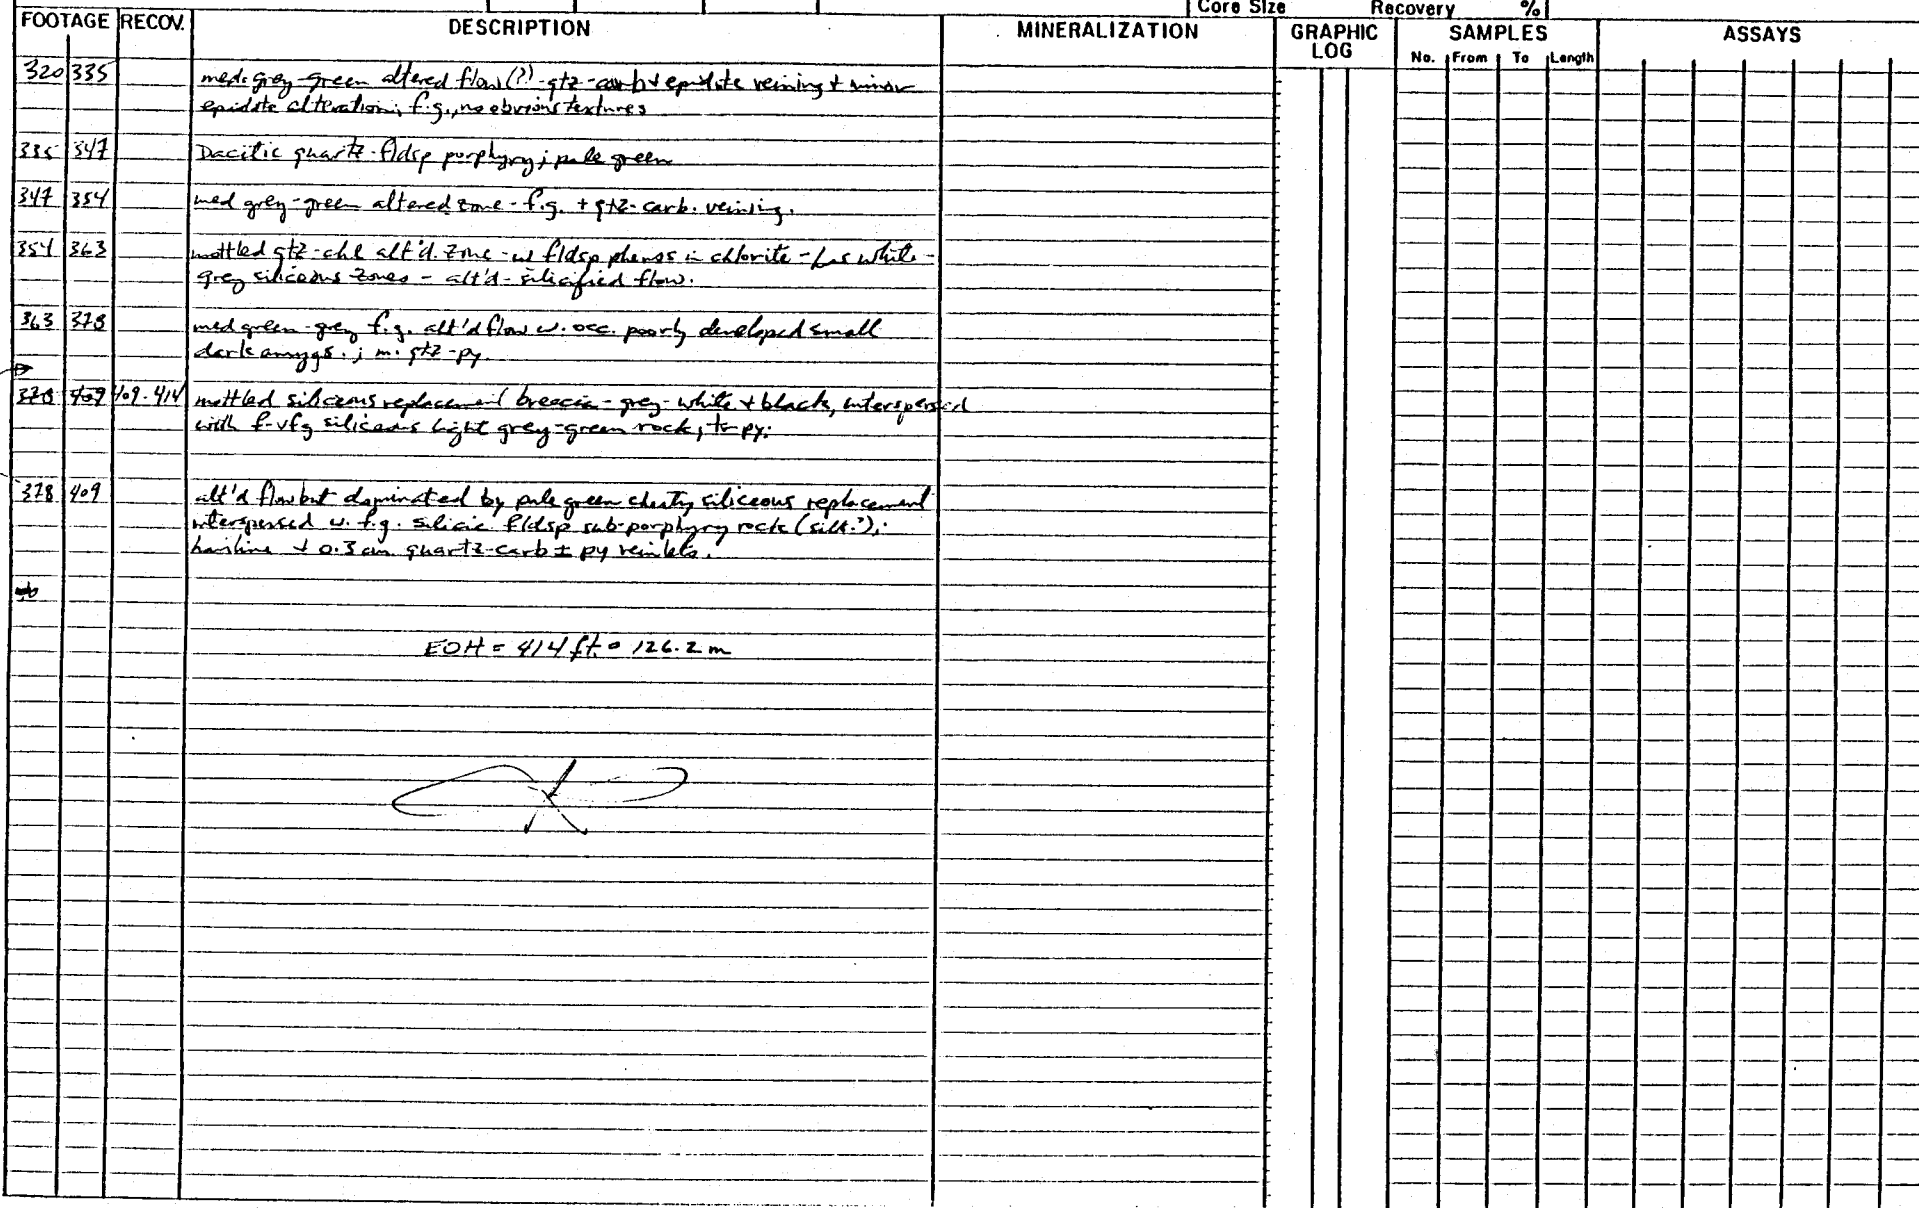 Core Size Recovery %
FOOTAGE RECOV. DESCRIPTION MINERALIZATION GRAPHIC LOG SAMPLES ASSAYS
No. From To Length
320 335 med. grey-green altered flow (?) - qtz-carb + epidote veining + minor
epidote alteration; f.g., no obvious textures
335 347 Dacitic quartz-fldsp porphyry; pale green
347 354 med grey-green altered zone - f.g. + qtz-carb. veining.
354 363 mottled qtz-chl alt'd. zone - w fldsp phenos in chlorite - has white-
grey siliceous zones - alt'd - silicified flow.
363 378 med green-grey f.g. alt'd flow w. occ. poorly developed small
dark amygs. ; m. qtz-py.
378 409 409-414 mottled siliceous replacement breccia - grey-white + black, interspersed
with f-vfg siliceous light grey-green rock; tr py;
378 409 alt'd flow but dominated by pale green cherty siliceous replacement
interspersed w. f.g. silicic fldsp sub-porphyry rock (silt?);
hairline + 0.3 cm quartz-carb ± py veinlets.
EOH = 414 ft. = 126.2 m